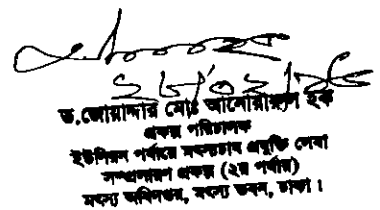 ২৮/০২/১৮
ড.জোয়াদ্দার মোঃ আনোয়ারুল হক
প্রকল্প পরিচালক
ইউনিয়ন পর্যায়ে মৎস্যচাষ প্রযুক্তি সেবা
সম্প্রসারণ প্রকল্প (২য় পর্যায়)
মৎস্য অধিদপ্তর, মৎস্য ভবন, ঢাকা।